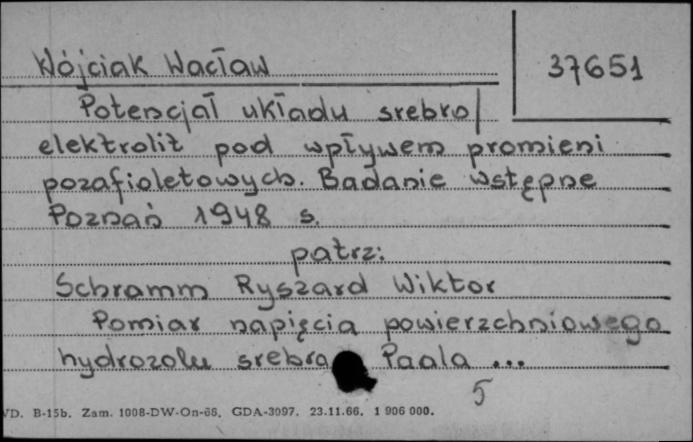 Wójciak Wacław
37651
Potencjał układu srebro/
elektrolit pod wpływem promieni
pozafioletowych. Badanie wstępne
Poznań 1948 s.
patrz:
Schramm Ryszard Wiktor
Pomiar napięcia powierzchniowego
hydrozolu srebra Paala ...
5
VD. B-15b. Zam. 1008-DW-On-66. GDA-3097. 23.11.66. 1 906 000.